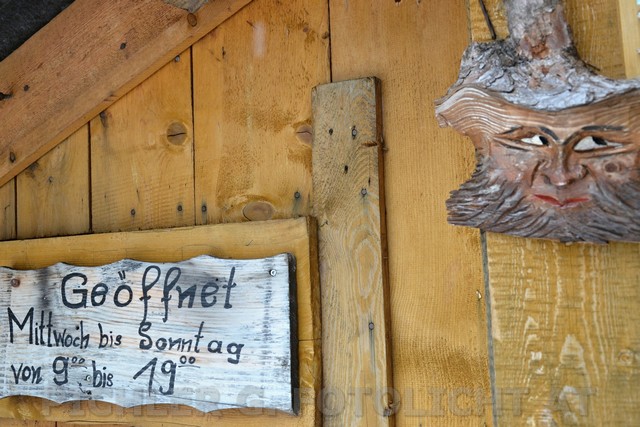 Geöffnet
Mittwoch bis Sonntag
von 9⁰⁰ bis 19⁰⁰